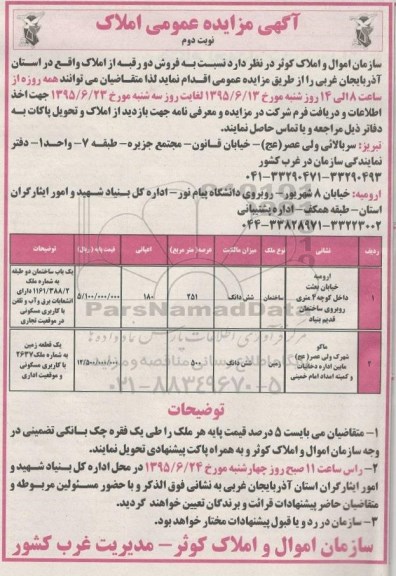 آگهی مزایده عمومی املاک
نوبت دوم
سازمان اموال و املاک کوثر در نظر دارد نسبت به فروش دو رقبه از املاک واقع در استان
آذربایجان غربی را از طریق مزایده عمومی اقدام نماید لذا متقاضیان می توانند همه روزه از
ساعت ۸ الی ۱۴ روز شنبه مورخ ۱۳۹۵/۶/۱۳ لغایت روز سه شنبه مورخ ۱۳۹۵/۶/۲۳ جهت اخذ
اطلاعات و دریافت فرم شرکت در مزایده و معرفی نامه جهت بازدید از املاک و تحویل پاکات به
دفاتر ذیل مراجعه و یا تماس حاصل نمایند.
تبریز: سربالائی ولی عصر(عج) – خیابان قانون – مجتمع جزیره – طبقه ۷ – واحد۱ – دفتر
نمایندگی سازمان در غرب کشور
۰۴۱-۳۳۲۹۰۴۷۱-۳۳۲۹۰۴۹۳
ارومیه: خیابان ۸ شهریور – روبروی دانشگاه پیام نور – اداره کل بنیاد شهید و امور ایثارگران
استان – طبقه همکف – اداره پشتیبانی
۰۴۴-۳۳۸۲۸۹۷۱-۳۳۲۲۳۰۰۲
ردیف نشانی نوع ملک میزان مالکیت عرصه( متر مربع) اعیانی قیمت پایه ( ریال) توضیحات
۱ ارومیه خیابان بعثت داخل کوچه ۴ متری روبروی ساختمان قدیم بنیاد ساختمان شش دانگ ۲۵۱ ۱۸۰ ۵/۱۰۰/۰۰۰/۰۰۰ یک باب ساختمان دو طبقه به شماره ملک ۱۱۶۱/۳۸۸/۲ دارای انشعابات برق و آب و تلفن با کاربری مسکونی در موقعیت تجاری
۲ ماکو شهرک ولی عصر( عج) مابین اداره دخانیات و کمیته امداد امام خمینی زمین شش دانگ ۵۰۰ ۱۲/۵۰۰/۰۰۰/۰۰۰ یک قطعه زمین به شماره ملک ۲۶۳۷ با کاربری مسکونی و موقعیت اداری
ParsNamadData
۰۲۱-۸۸۳۴۹۶۷۰-۵
توضیحات
۱- متقاضیان می بایست ۵ درصد قیمت پایه هر ملک را طی یک فقره چک بانکی تضمینی در
وجه سازمان اموال و املاک کوثر و به همراه پاکت پیشنهادی تحویل نمایند.
۲- راس ساعت ۱۱ صبح روز چهارشنبه مورخ ۱۳۹۵/۶/۲۴ در محل اداره کل بنیاد شهید و
امور ایثارگران استان آذربایجان غربی به نشانی فوق الذکر و با حضور مسئولین مربوطه و
متقاضیان حاضر پیشنهادات قرائت و برندگان تعیین خواهند گردید.
۳- سازمان در رد و یا قبول پیشنهادات مختار خواهد بود.
سازمان اموال و املاک کوثر – مدیریت غرب کشور